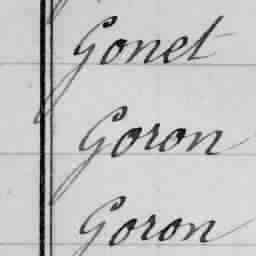 Gonet
Goron
Goron